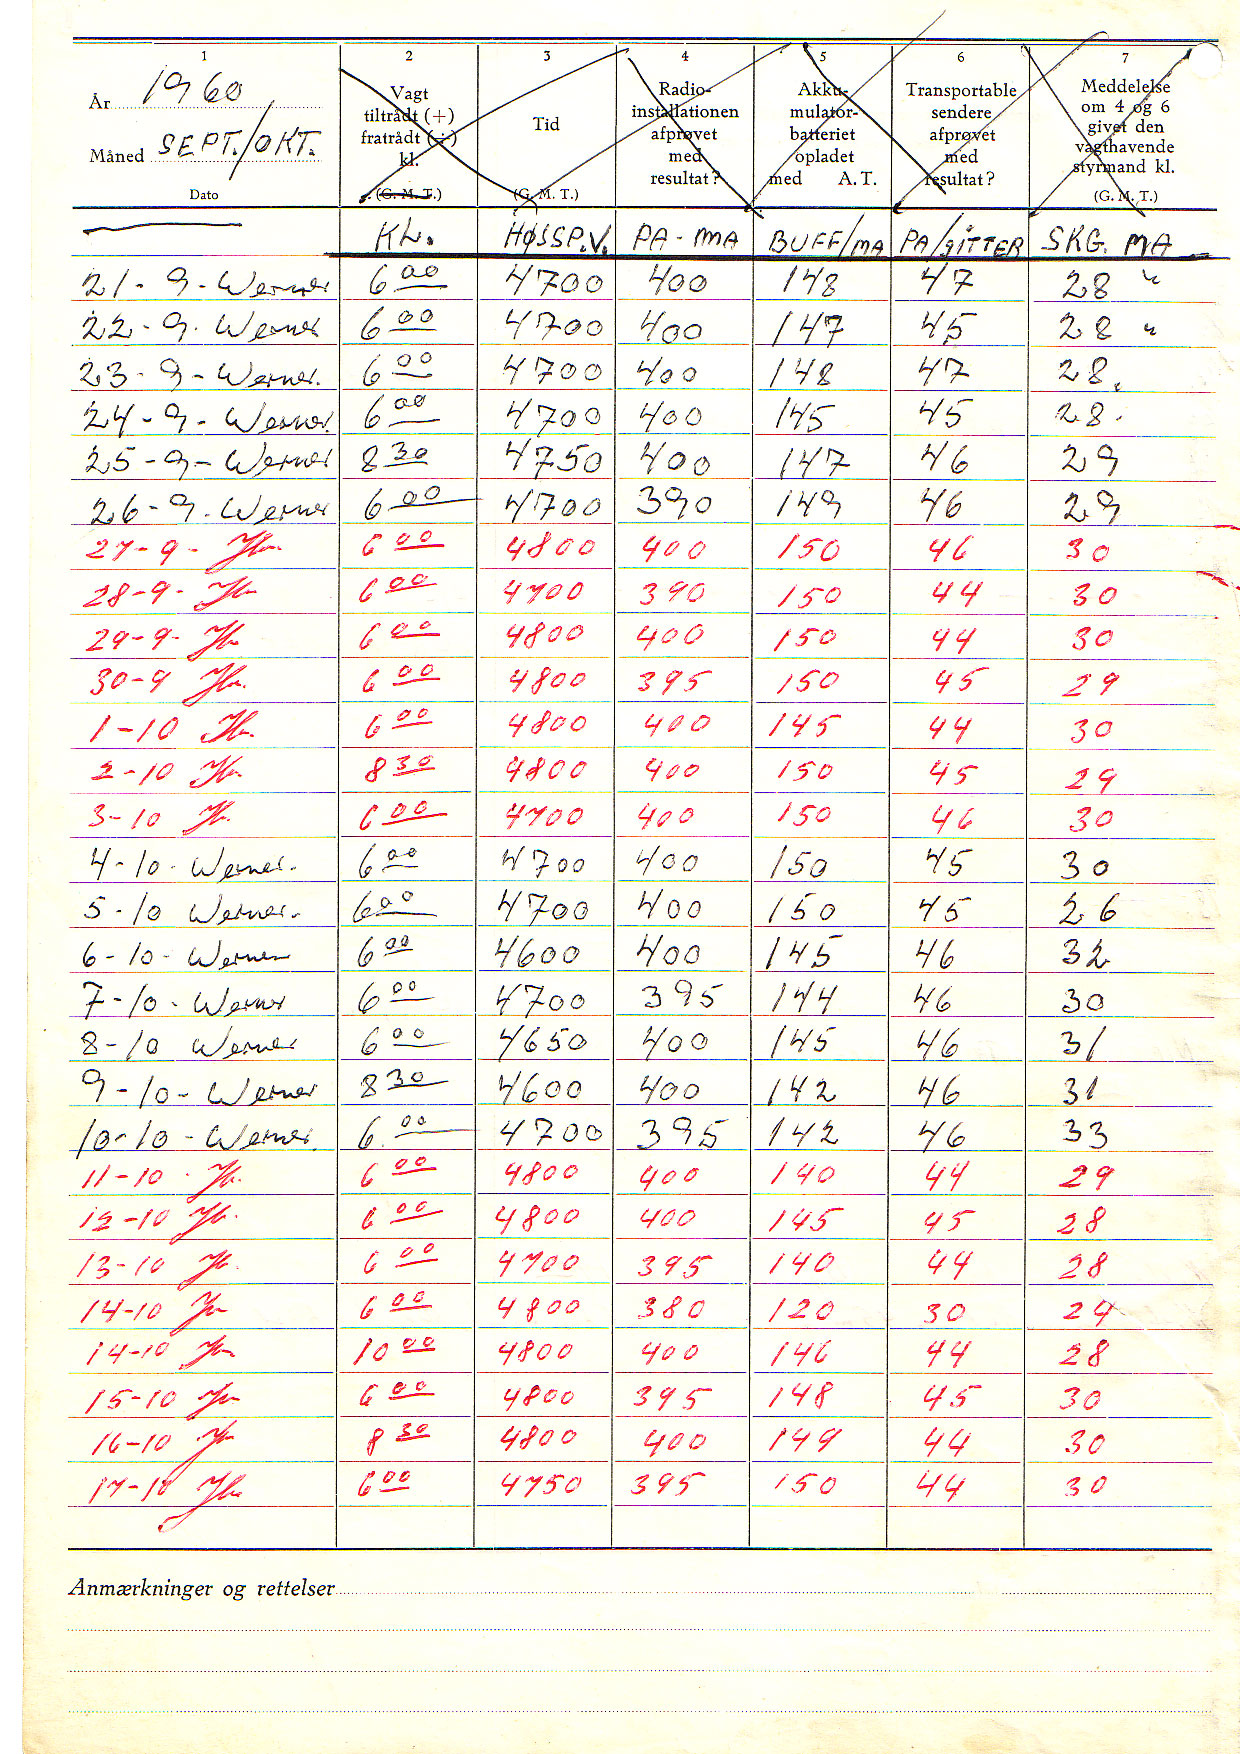 1 2 3 4 5 6 7
År 1960
Måned SEPT./OKT.
Dato
Vagt
tiltrådt (+)
fratrådt (÷)
kl.
(G. M. T.)
Tid
(G. M. T.)
Radio-
installationen
afprøvet
med
resultat?
Akku-
mulator-
batteriet
opladet
med A. T.
Transportable
sendere
afprøvet
med
resultat?
Meddelelse
om 4 og 6
givet den
vagthavende
styrmand kl.
(G. M. T.)
KL. HØJSP.V. PA - MA BUFF/MA PA/GITTER SKG. MA
21-9-Werner 6 00 4700 400 148 47 28 "
22-9-Werner 6 00 4700 400 147 45 28 "
23-9-Werner. 6 00 4700 400 148 47 28.
24-9-Werner. 6 00 4700 400 145 45 28.
25-9-Werner 8 30 4750 400 147 46 29
26-9-Werner 6 00 4700 390 149 46 29
27-9- 6 00 4800 400 150 46 30
28-9- 6 00 4700 390 150 44 30
29-9- 6 00 4800 400 150 44 30
30-9 6 00 4800 395 150 45 29
1-10 6 00 4800 400 145 44 30
2-10 8 30 4800 400 150 45 29
3-10 6 00 4700 400 150 46 30
4-10-Werner. 6 00 4700 400 150 45 30
5-10 Werner. 6 00 4700 400 150 45 26
6-10-Werner 6 00 4600 400 145 46 32
7-10-Werner 6 00 4700 395 144 46 30
8-10 Werner 6 00 4650 400 145 46 31
9-10-Werner 8 30 4600 400 142 46 31
10-10-Werner. 6 00 4700 395 142 46 33
11-10 6 00 4800 400 140 44 29
12-10 6 00 4800 400 145 45 28
13-10 6 00 4700 395 140 44 28
14-10 6 00 4800 380 120 30 24
14-10 10 00 4800 400 146 44 28
15-10 6 00 4800 395 148 45 30
16-10 8 30 4800 400 149 44 30
17-10 6 00 4750 395 150 44 30
Anmærkninger og rettelser